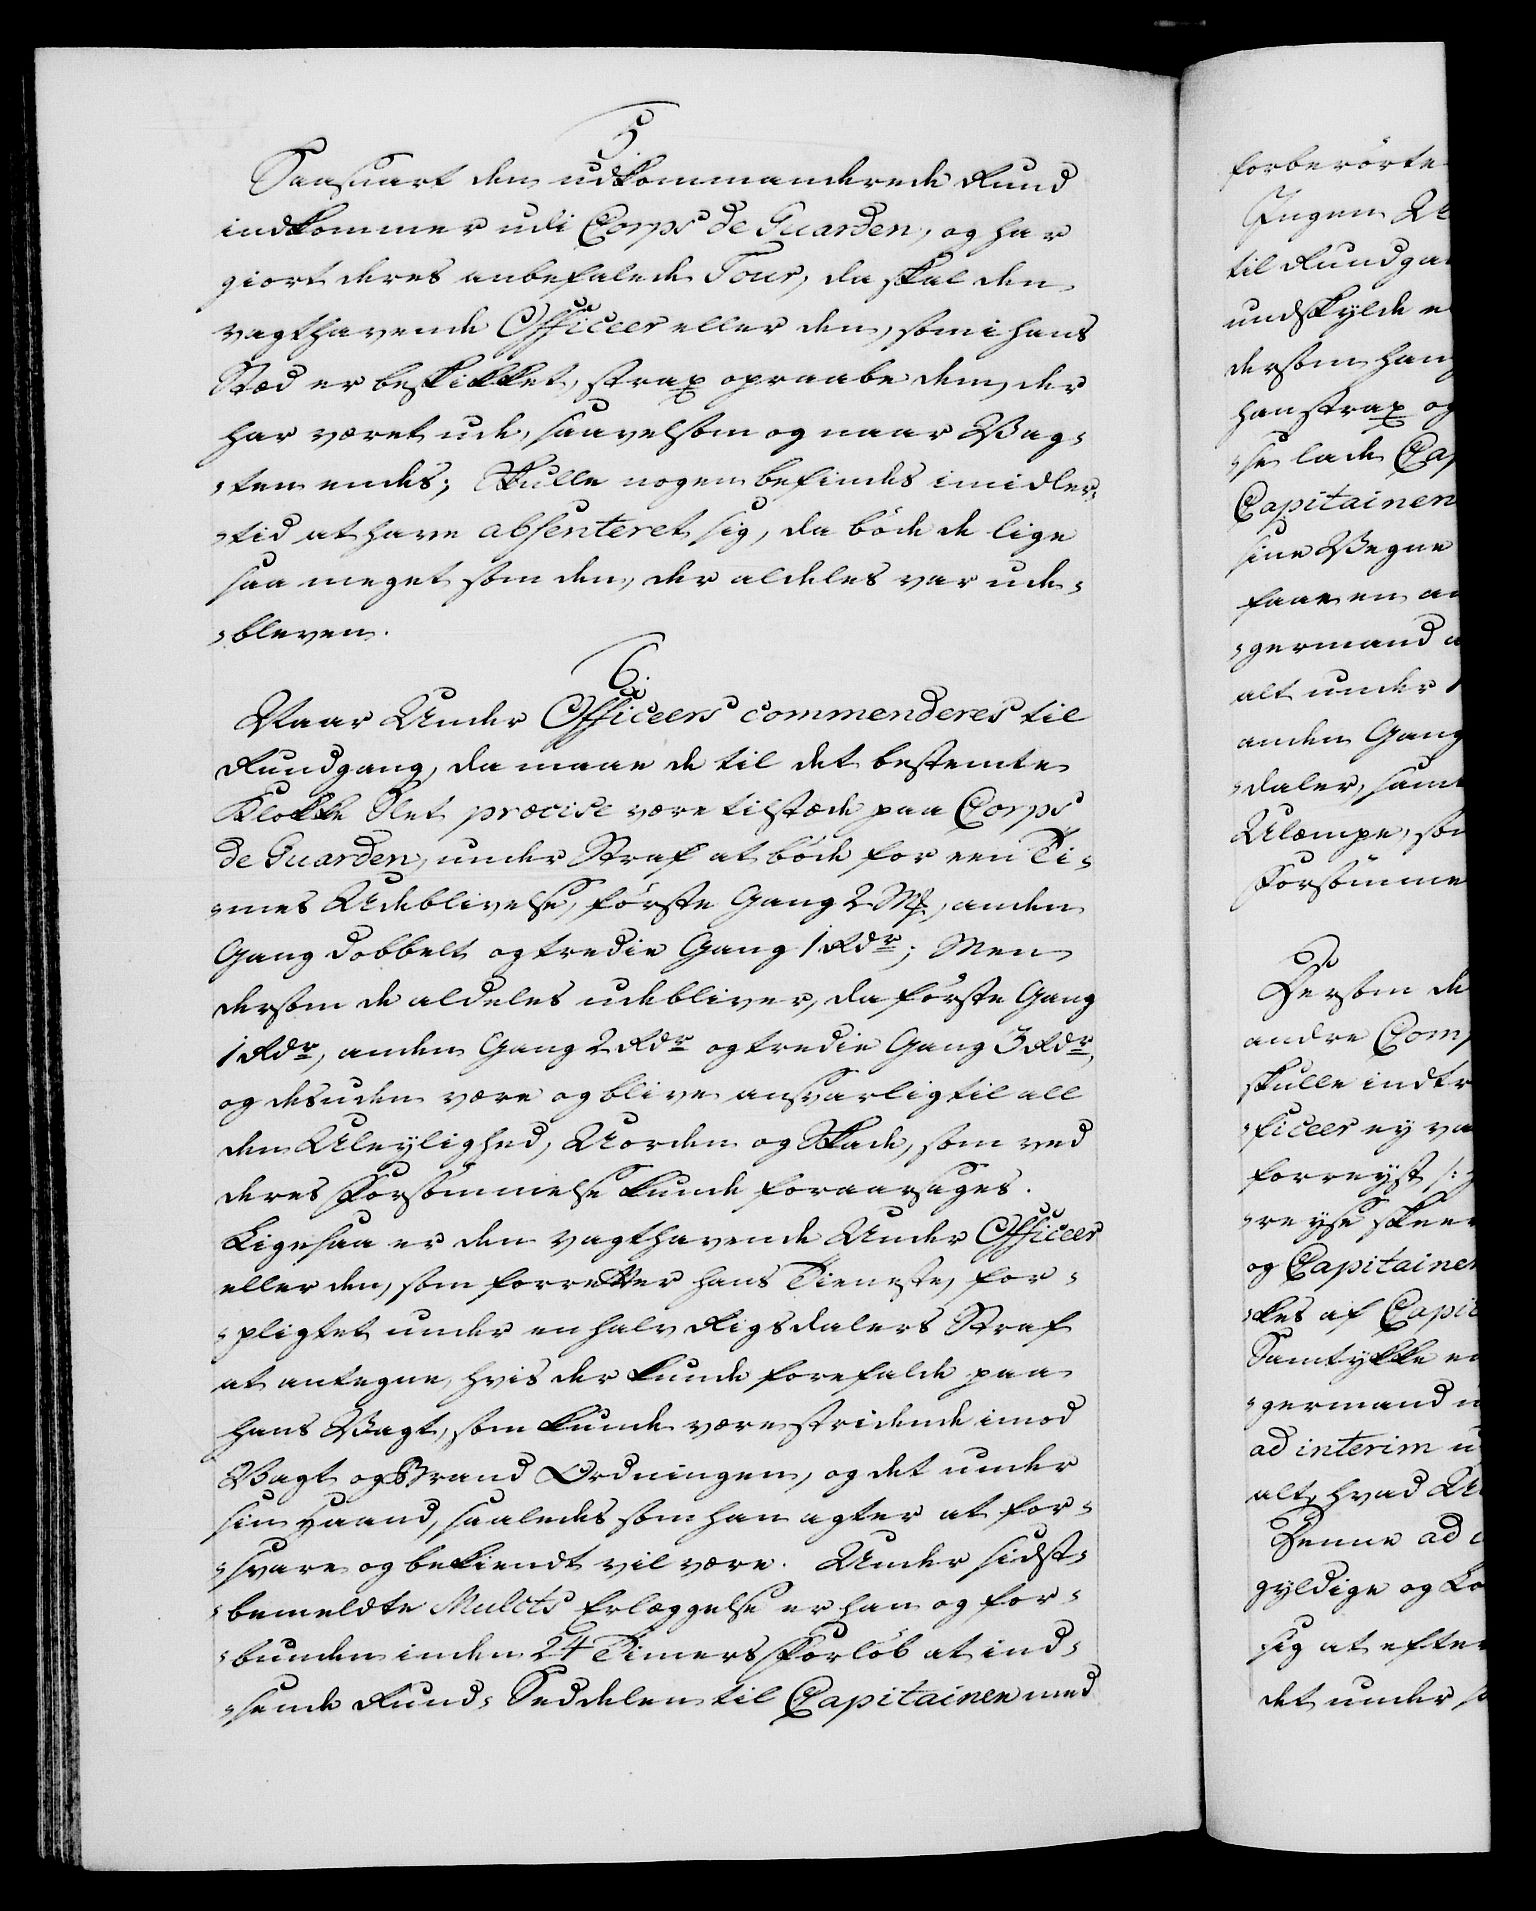 5.
Saasnart den udkommanderede Rund
indkommer udi Corps de Guarden, og har
giort deres anbefalede Tour, da skal den
vagthavende Officeer eller den, som i hans
Sted er beskikket, strax opraabe dem, der
har været ude, saavelsom og naar Vag-
-ten endes; Skulle nogen befindes imidler-
-tid at have absenteret sig, da böde de lige
saa meget som den, der aldeles var ude-
-bleven.
6.
Naar Under Officeers commenderes til
Rundgang, da maae de til det bestemte
Klokke Slet præcise være tilstæde paa Corps
de Guarden, under Straf at böde for een Ti-
-mes Udeblivelse, förste Gang 2 Mk, anden
Gang dobbelt og tredie Gang 1 Rdr; Men
dersom de aldeles udebliver, da förste Gang
1 Rdr, anden Gang 2 Rdr og tredie Gang 3 Rdr,
og desuden være og blive ansvarlig til all
den Uleylighed, Uorden og Skade, som ved
deres Forsömmelse kunde foraarsages.
Ligesaa er den vagthavende Under Officeer
eller den, som forretter hans Tieneste, for-
-pligtet under en halv Rigsdalers Straf
at antegne, hvis der kunde forefalde paa
hans Vagt, som kunde være stridende imod
Vagt og Brand Ordningen, og det under
sin Haand, saaledes som han agter at for-
-svare og bekiendt vil være. Under sidst-
-bemeldte Mulcts Erlæggelse er han og for-
-bunden inden 24 Timers Forlöb at ind-
-sende Rund-Seddelen til Capitainen med
forberörte
Ingen
til Rundga
undskylde
dersom han
han strax og
-se lade Cap
Capitainen
sine Vegne
faae en
-germand
alt under
anden Gang
-daler, samt
Ulempe, som
Forsömme
Dersom de
andre Comp
skulle indtr
-ficeer ey va
forreyst
-reyse skeer
og Capitainen
-kes af Capit
Samtykke
-germand
ad interim
alt, hvad
Denne ad
gyldige og
sig at efter
det under